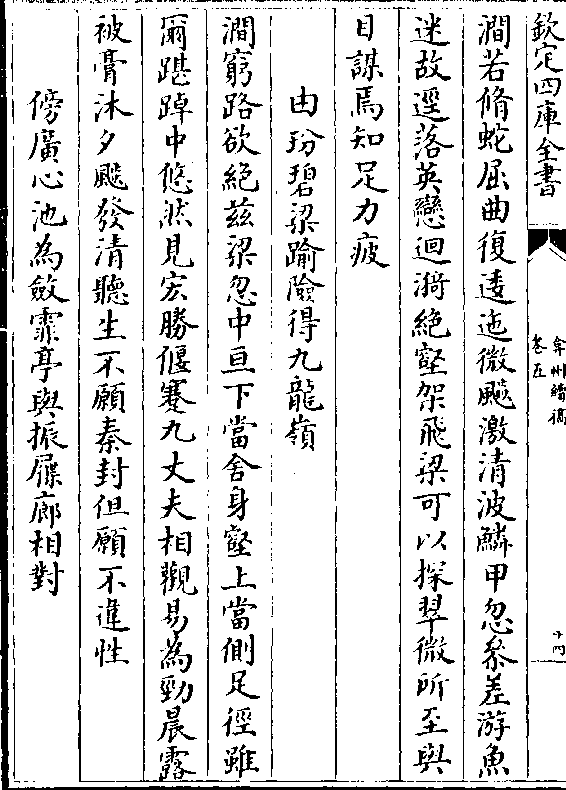 欽定四庫全書
弇州續稿
卷五
十四
澗若脩蛇屈曲復逶迤微飈激清波鱗甲忽叅差游魚
迷故逕落英戀迴漪絶壑架飛梁可以探翠微所至與
目謀焉知足力疲
由玢碧梁踰險得九龍嶺
澗窮路欲絶兹梁忽中亘下當舍身壑上當側足徑雖
爾踸踔中悠然見宏勝偃蹇九丈夫相觀易為勁晨露
被膏沐夕飈發清聽生不願秦封但願不進性
傍廣心池為斂霏亭與振屧廊相對